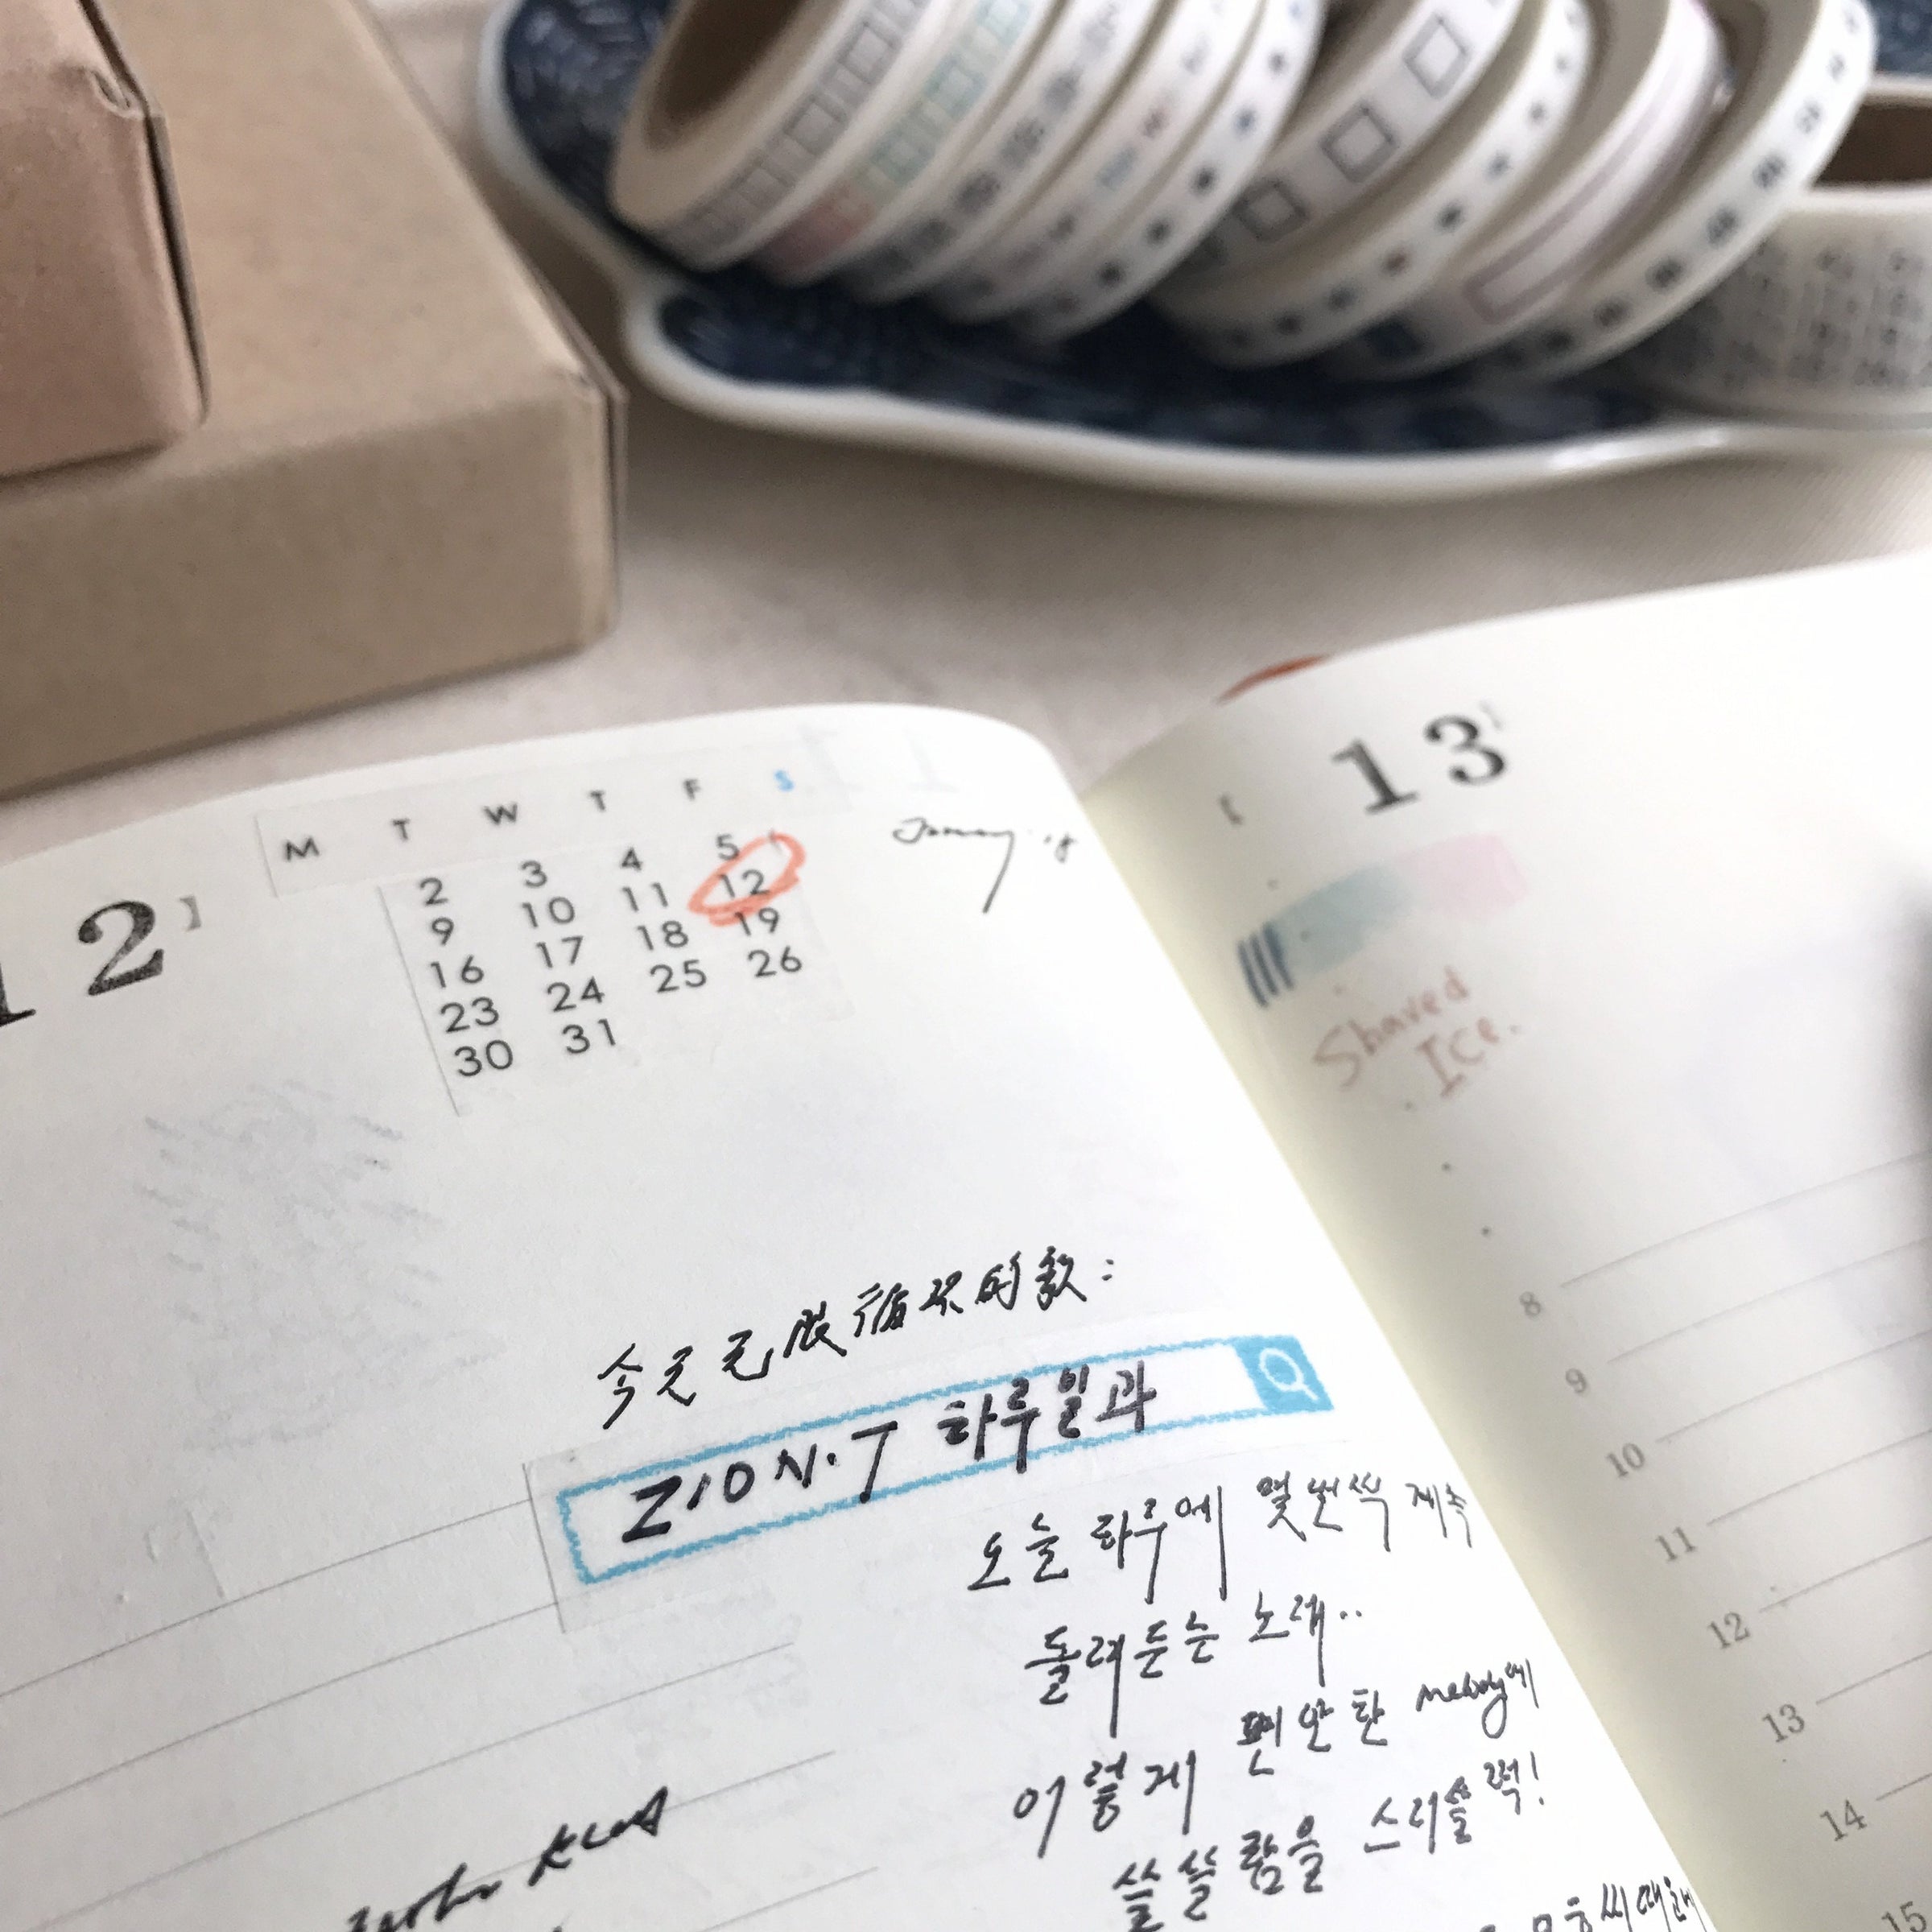 12】
M T W T F S
2 3 4 5
9 10 11 12
16 17 18 19
23 24 25 26
30 31
January '18
今天无限循环的歌:
ZION.T 하루일과
오늘 하루에 몇번씩 계속
돌려듣는 노래..
이렇게 편안한 melody에
쓸쓸함을 스리슬쩍!
【 13】
Shaved
Ice.
8
9
10
11
12
13
14
15